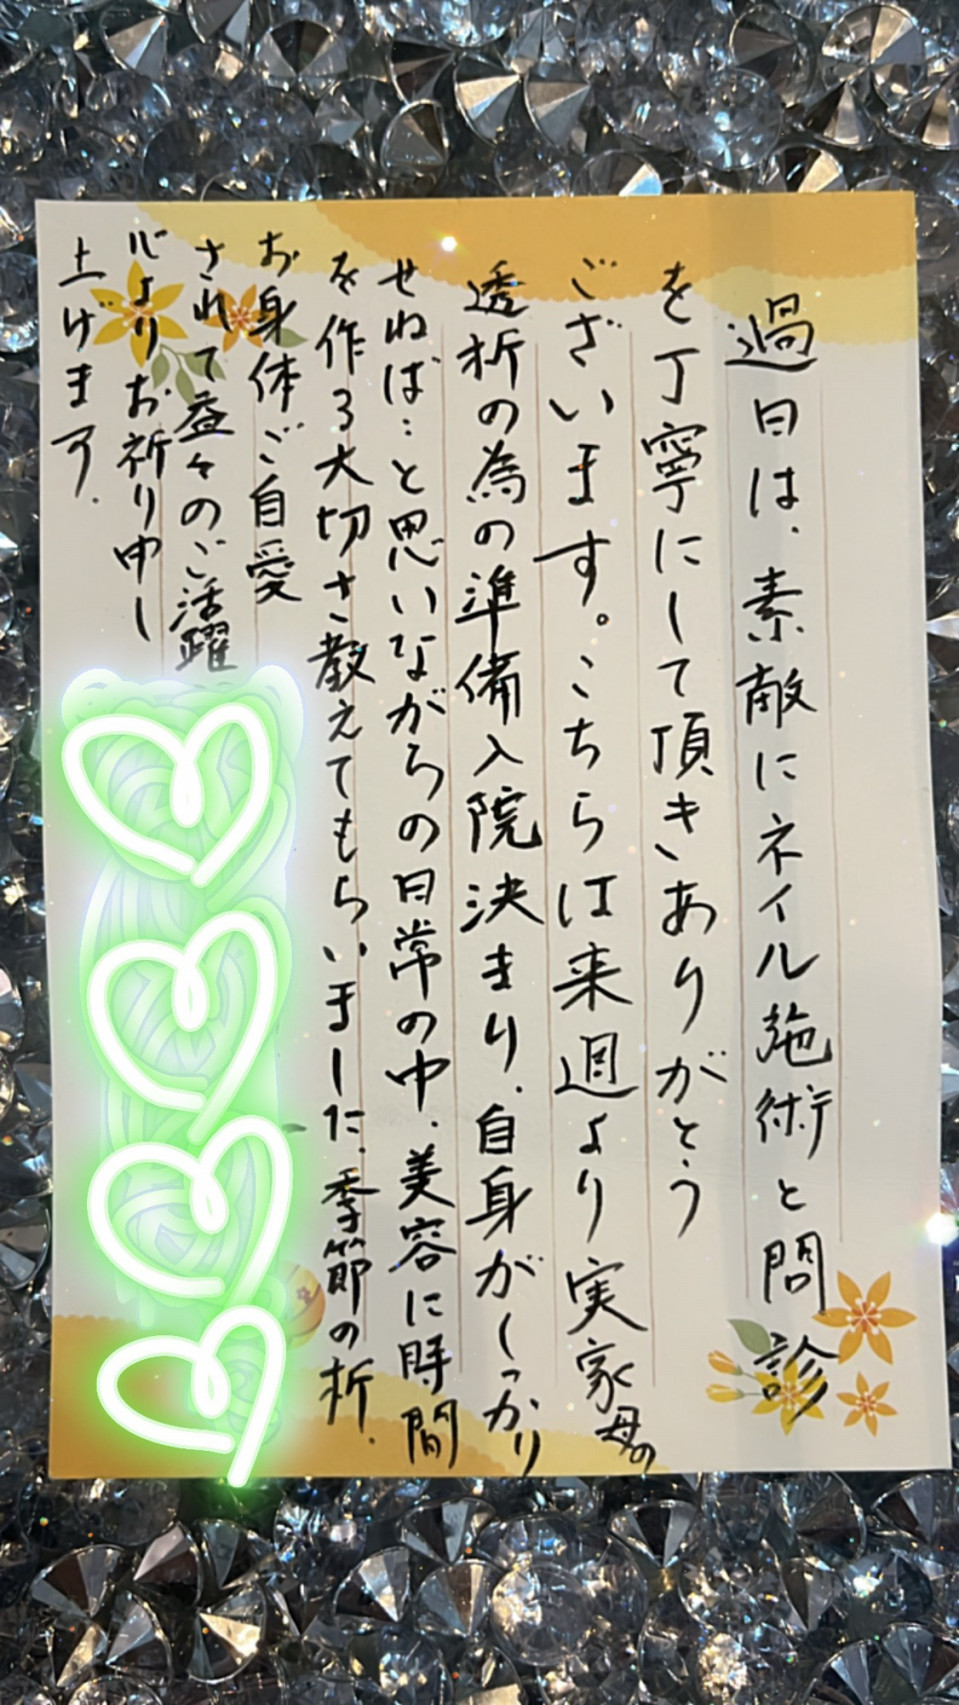 過日は、素敵にネイル施術と問診
を丁寧にして頂きありがとう
ございます。こちらは来週より実家母の
透析の為の準備入院決まり、自身がしっかり
せねば…と思いながらの日常の中、美容に時間
を作る大切さ教えてもらいました、季節の折、
お身体ご自愛
されて益々のご活躍
心よりお祈り申し
上げます、